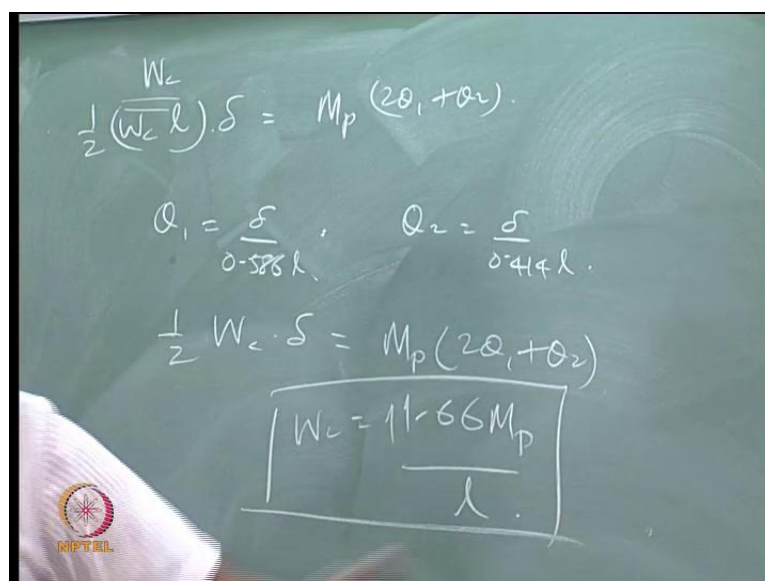 W_c
1/2 (w_c l).δ = M_p (2θ_1 + θ_2).
θ_1 = δ/0.586 l. θ_2 = δ/0.414 l.
1/2 W_c . δ = M_p (2θ_1 + θ_2)
W_c = 11.66 M_p / l.
NPTEL